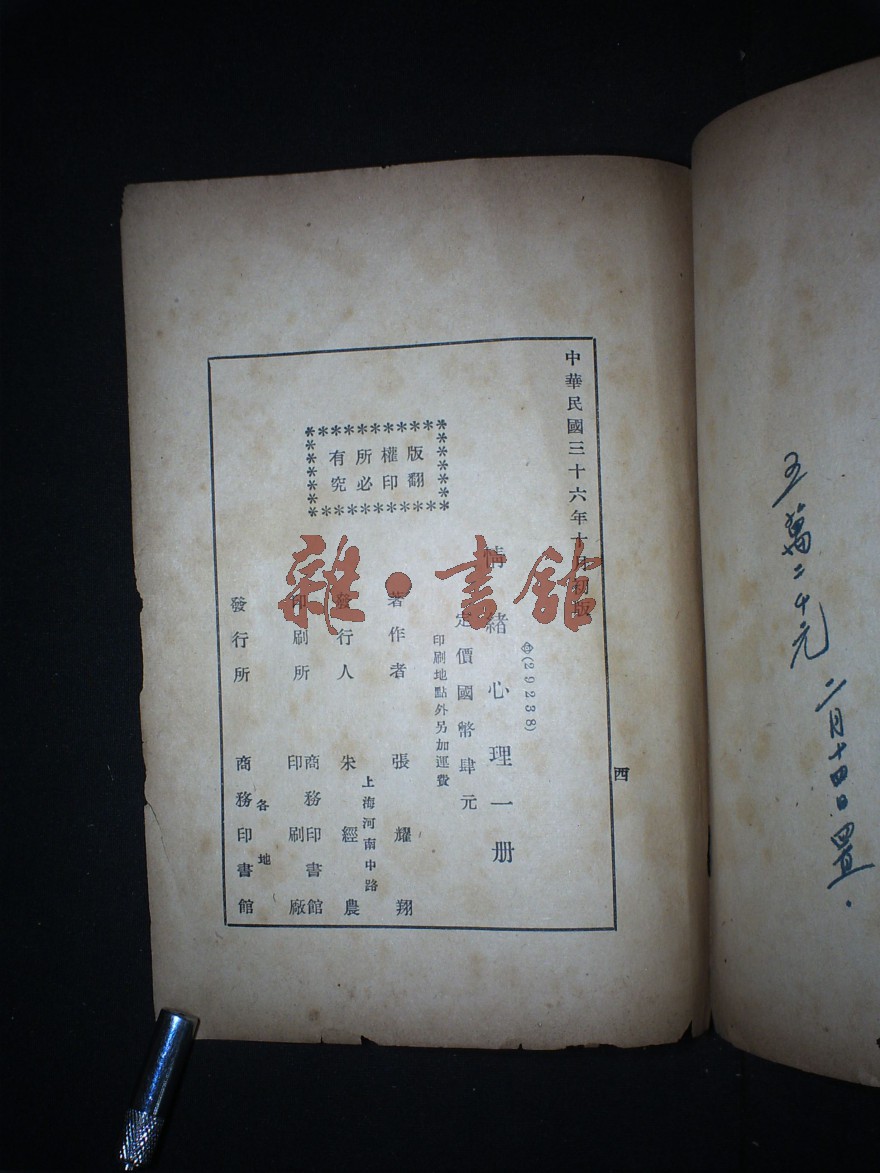 中華民國三十六年十月初版
(29238)
情緒心理一册
定價國幣肆元
印刷地點外另加運費
版權所有
翻印必究
著作者 張耀翔
上海河南中路
發行人 朱經農
印刷所 商務印書館
印刷廠
各地
發行所 商務印書館
西
五萬二千元
二月十四日置
雜·書館